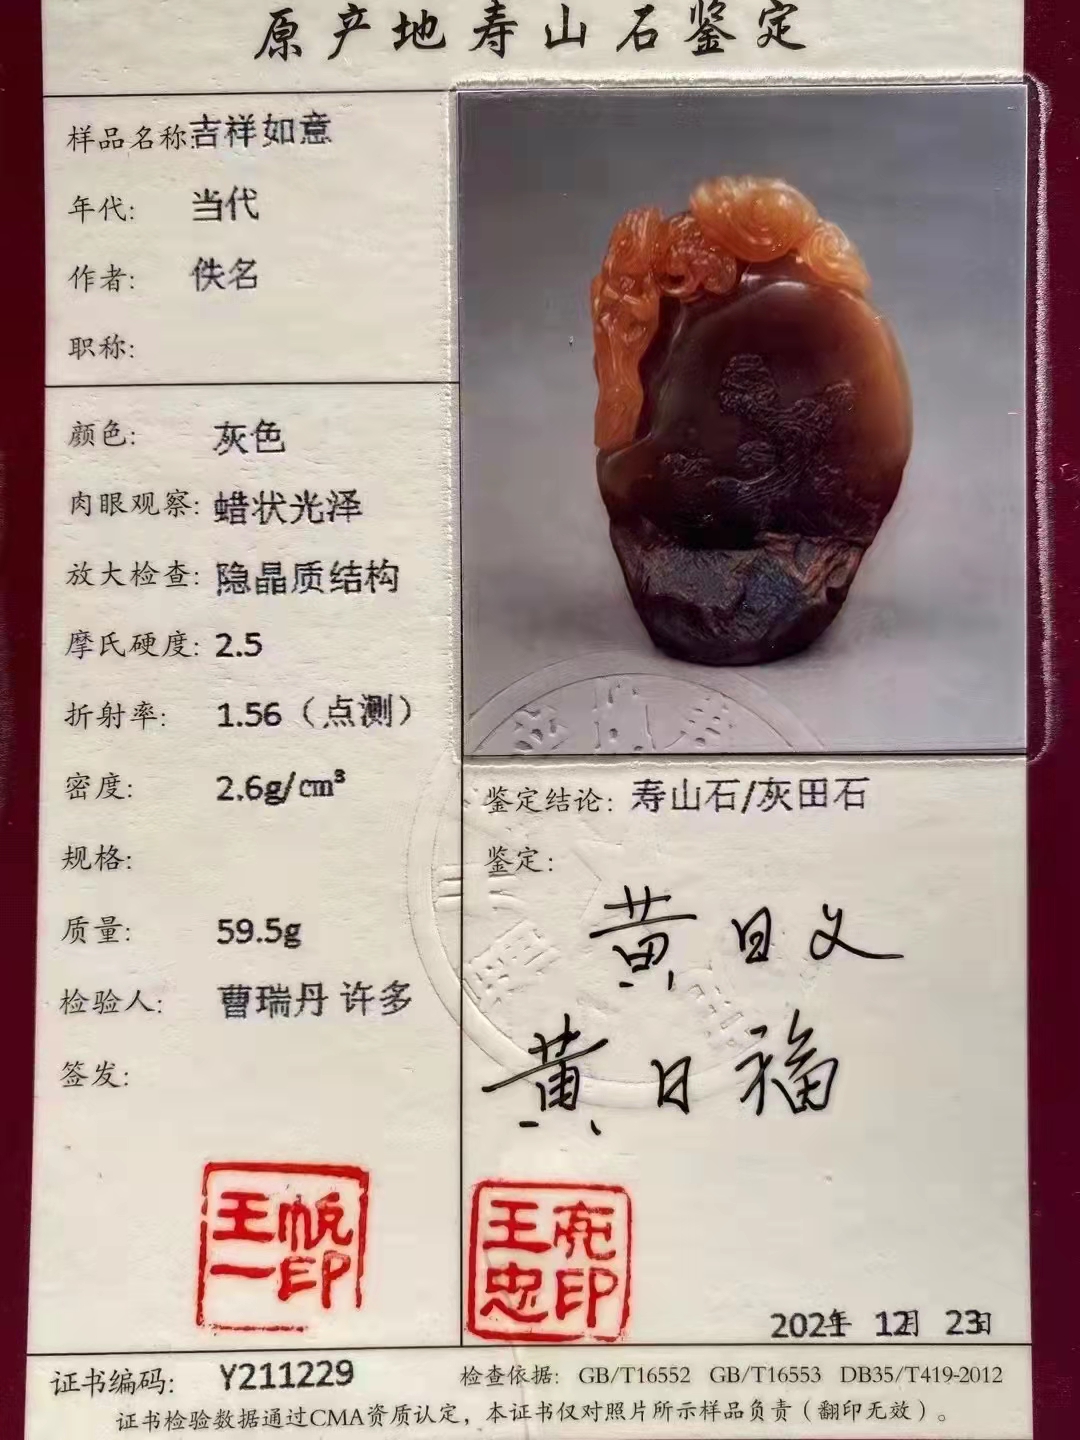 原产地寿山石鉴定
样品名称:吉祥如意
年代: 当代
作者: 佚名
职称:
颜色: 灰色
肉眼观察: 蜡状光泽
放大检查: 隐晶质结构
摩氏硬度: 2.5
折射率: 1.56（点测）
密度: 2.6g/cm³
规格:
质量: 59.5g
检验人: 曹瑞丹 许多
签发:
王帆
一印
鉴定结论: 寿山石/灰田石
鉴定:
黄日文
黄日福
王亮
忠印
2021年 12月 23日
证书编码: Y211229
检查依据: GB/T16552 GB/T16553 DB35/T419-2012
证书检验数据通过CMA资质认定，本证书仅对照片所示样品负责（翻印无效）。